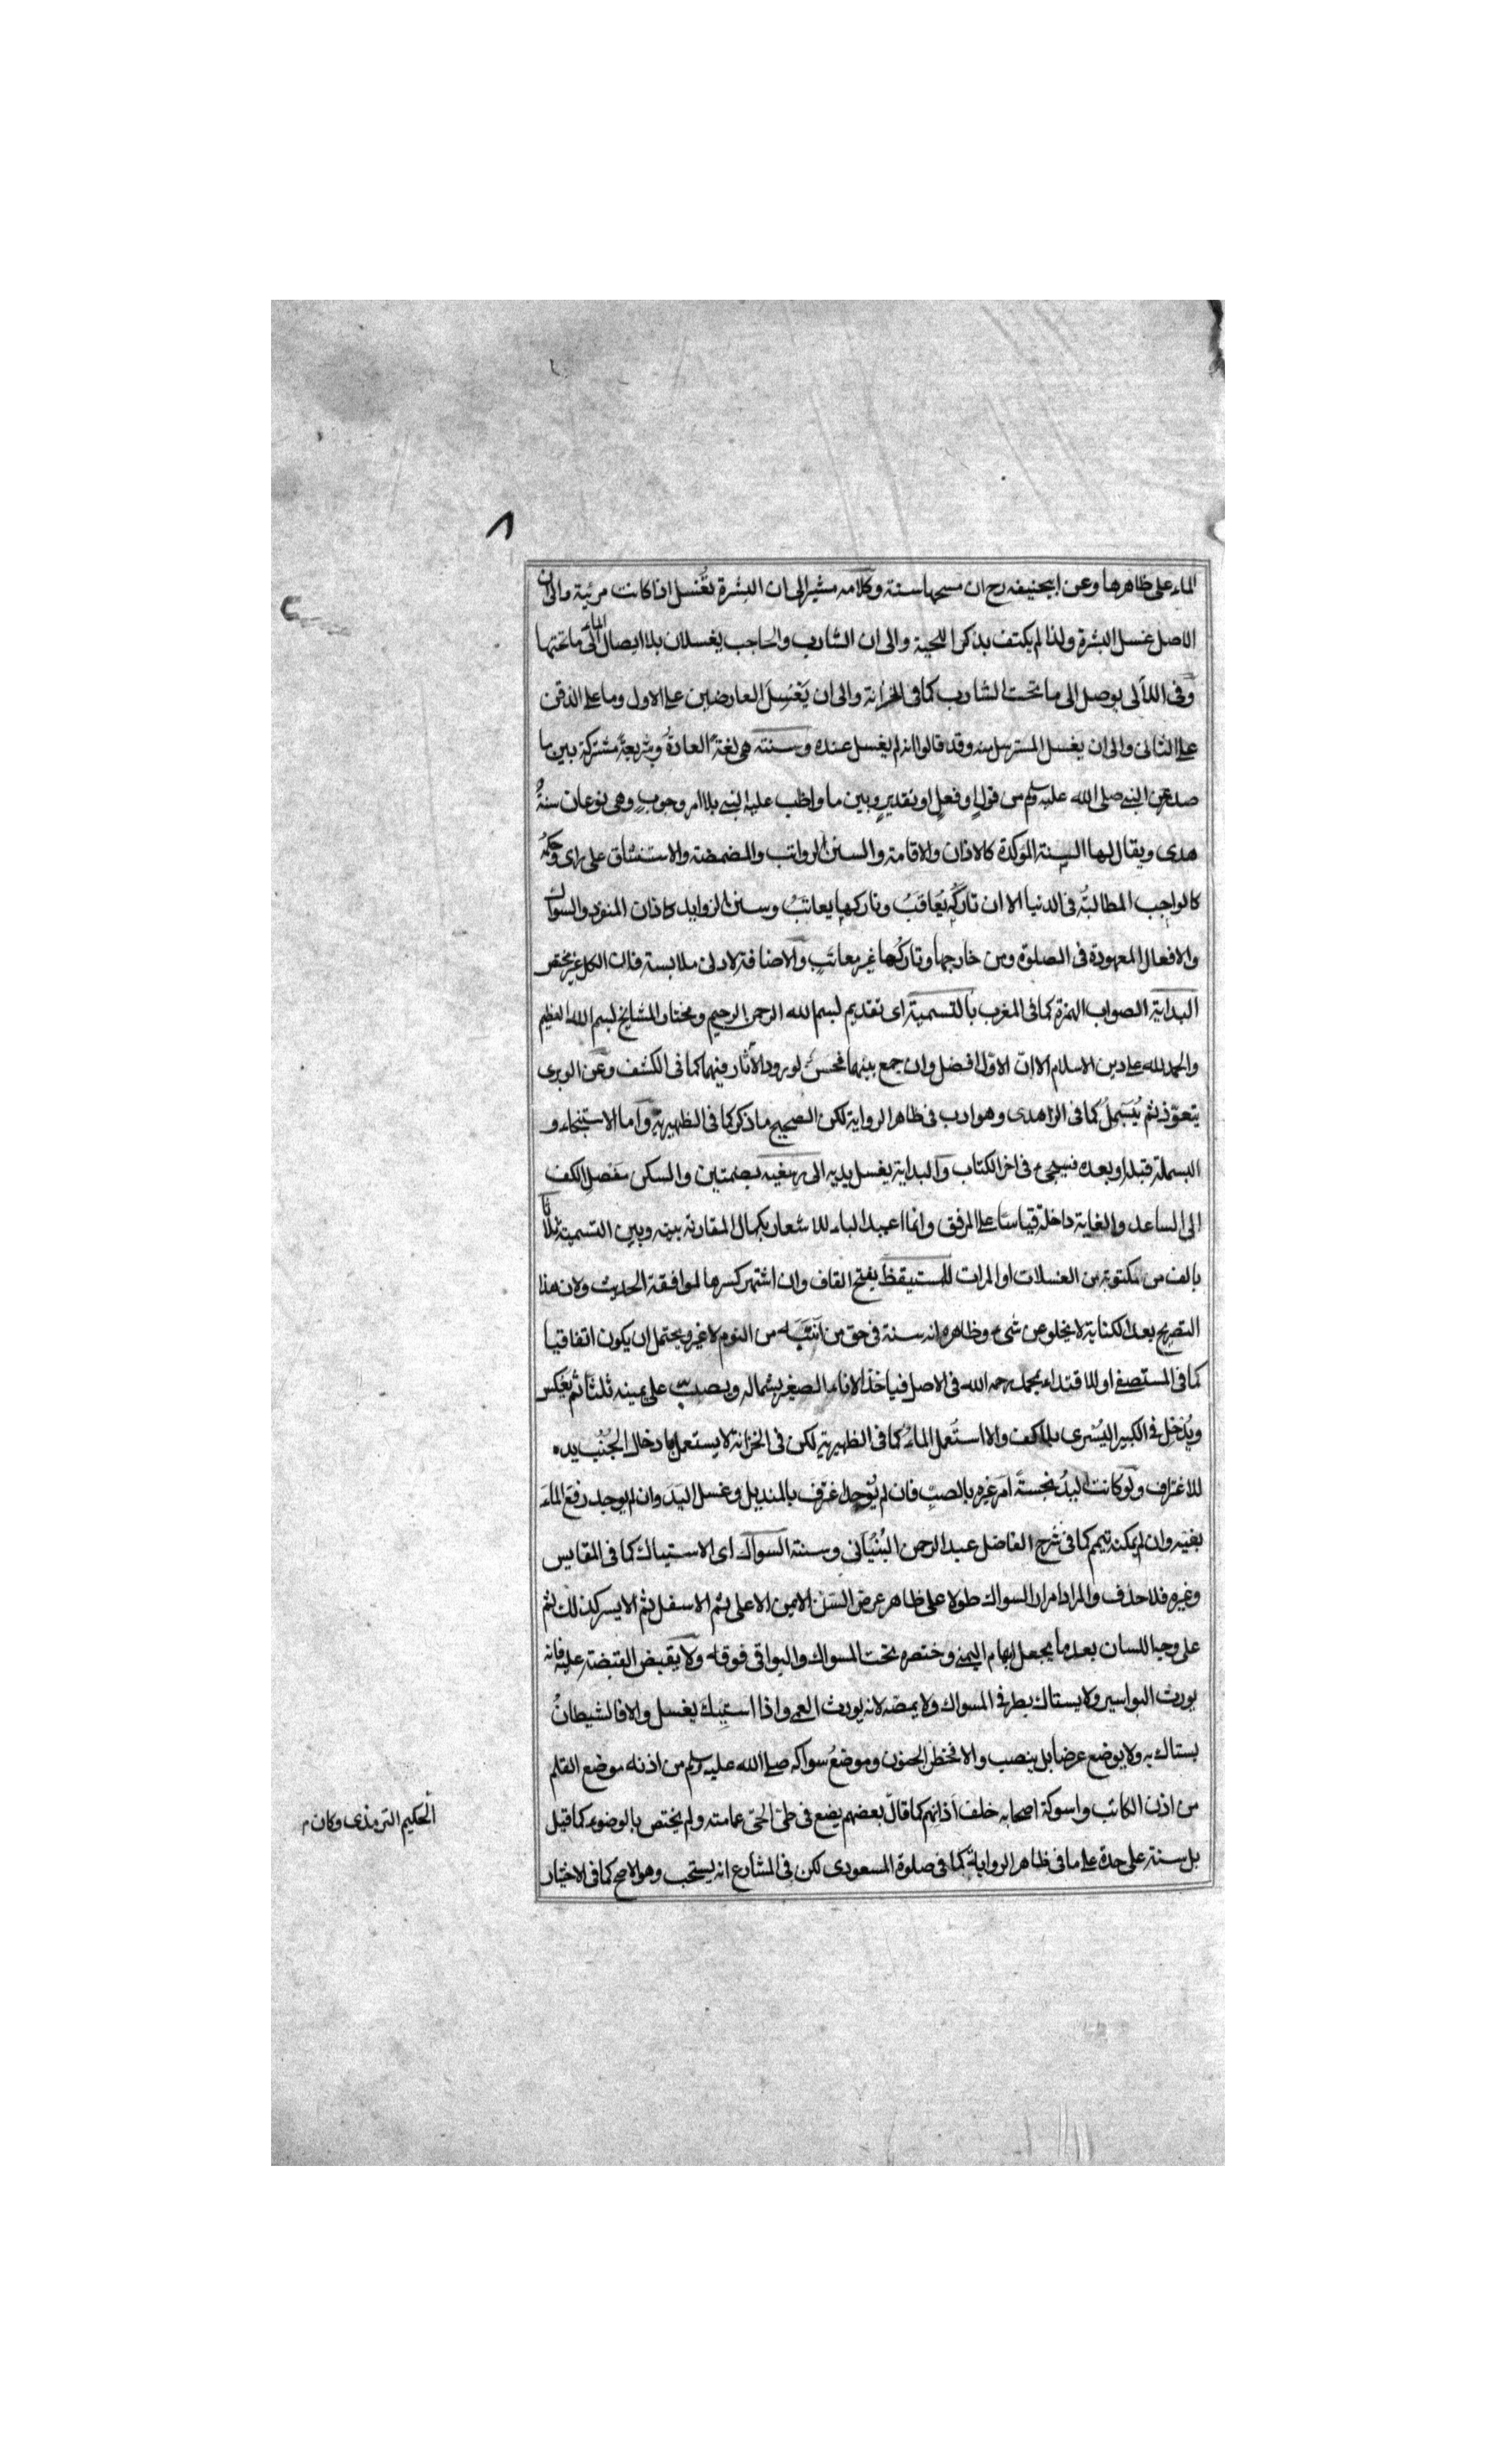 ٨
الماء على ظاهرها وعن ابيحنيفه رح ان مسحها سنة وكلامه مشير الى ان البشرة تغسل اذا كانت مرئية والى ان
الاصل غسل البشرة ولذا لم يكتف بذكر اللحية والى ان الشارب والحاجب يغسلان بلا ايصال الماء الى ما تحتها
وفى اللآلى يوصل الى ما تحت الشارب كما فى الخزانة والى ان يغسل العارضين على الاول وما على الذقن
على الثانى والى ان يغسل المسترسل منه وقد قالوا انه لم يغسل عنده وسنته هى لغة العادة وشريعة مشتركة بين ما
صدر عن النبى صلى الله عليه وسلم من قول او فعل او تقدير وبين ما واظب عليه النبى بلا امر وجوب وهى نوعان سنة
هدى ويقال لها السنة المؤكدة كالاذان والاقامة والسنن الرواتب والمضمضة والاستنشاق على راى وحكمه
كالواجب المطالبة فى الدنيا الا ان تاركه يعاقب وتاركها يعاتب وسنن الزوايد كاذان المنفرد والسواك
والافعال المعهودة فى الصلوة ومن خارجها وتاركها غير معاتب والاضافة لادنى ملابسة فان الكل غير مختص
البداية الصواب الهمزة كما فى المغرب بالتسمية اى تقديم بسم الله الرحمن الرحيم ومختار المشايخ بسم الله العظيم
والحمد لله على دين الاسلام الا ان الاول افضل وان جمع بينهما فحسن لورود الآثار فيهما كما فى الكشف وعن الوبرى
يتعوذ ثم يبسمل كما فى الزاهدى وهو ادب فى ظاهر الرواية لكن الصحيح ما ذكر كما فى الظهيرية واما الاستنجاء و
البسملة قبله او بعده فيجىء فى اخر الكتاب والبداية بغسل يديه الى رسغيه بضمتين والسكن مفصل الكف
الى الساعد والغاية داخلة قياسا على المرفق وانما اعيد الباء للاشعار بكمال المقارنة بينه وبين التسمية ثلاثا
بالف من مكتوبة من الغسلات او المرات للمستيقظ بفتح القاف وان اشتهر كسرها لموافقة الحديث ولان هذا
التصريح بعد الكناية لا يخلو عن شىء وظاهره انه سنة فى حق من انتبه من النوم لا غير ويحتمل ان يكون اتفاقيا
كما فى المستصفى او للاقتداء بمحمد رحمه الله فى الاصل فياخذ الاناء الصغير بشماله ويصب على يمينه ثلثا ثم يعكس
ويدخل فى الكبير اليسرى بلا كف والا استعمل الماء كما فى الظهيرية لكن فى الخزانة لا يستعمل بادخال الجنب يده
للاغتراف ولو كانت اليد نجسة امر غيره بالصب فان لم يوجد اغترف بالمنديل وغسل اليد وان لم يوجد رفع الماء
بفيه وان لم يمكنه تيمم كما فى شرح الفاضل عبد الرحمن وسنة السواك اى الاستياك كما فى المقايس
وغيره فلا حذف والمراد امرار السواك طولا على ظاهر عرض السن الايمن الاعلى ثم الاسفل ثم الايسر كذلك ثم
على وجه اللسان بعد ما يجعل ابهام اليمنى وخنصره تحت المسواك والبواقى فوقه ولا يقبض القبضة عليه فانه
يورث البواسير ولا يستاك بطرفى المسواك ولا يمصه لانه يورث العمى واذا استيك يغسل والا فالشيطان
يستاك به ولا يوضع عرضا بل ينصب والا فخطر الجنون وموضع سواكه صلى الله عليه وسلم من اذنه موضع القلم
من اذن الكاتب واسوكة اصحابه خلف آذانهم كما قال بعضهم يضع فى طى عمامته ولم يختص بالوضوء كما قيل
بل سنة على حدة على ما فى ظاهر الرواية كما فى صلوة المسعودى لكن فى المشارع انه يستحب وهو الاصح كما فى الاختيار
الحكيم الترمذى وكان م